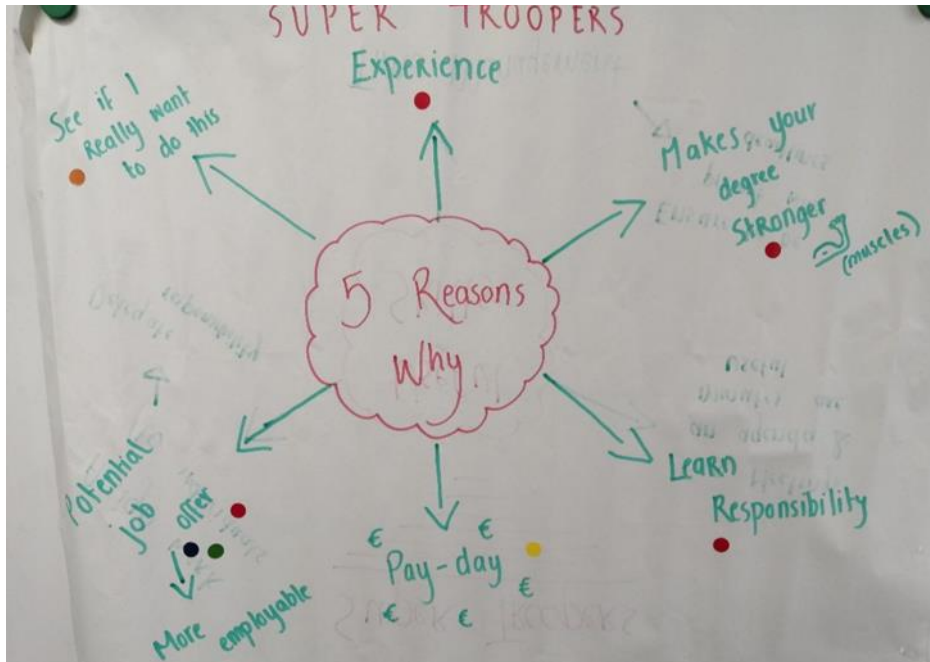 SUPER TROOPERS
Experience
See if I
Really want
to do this
Makes your
degree
Stronger
(muscles)
5 Reasons
Why
Potential
Job offer
More employable
€ €
Pay-day
€
€ €
Learn
Responsibility